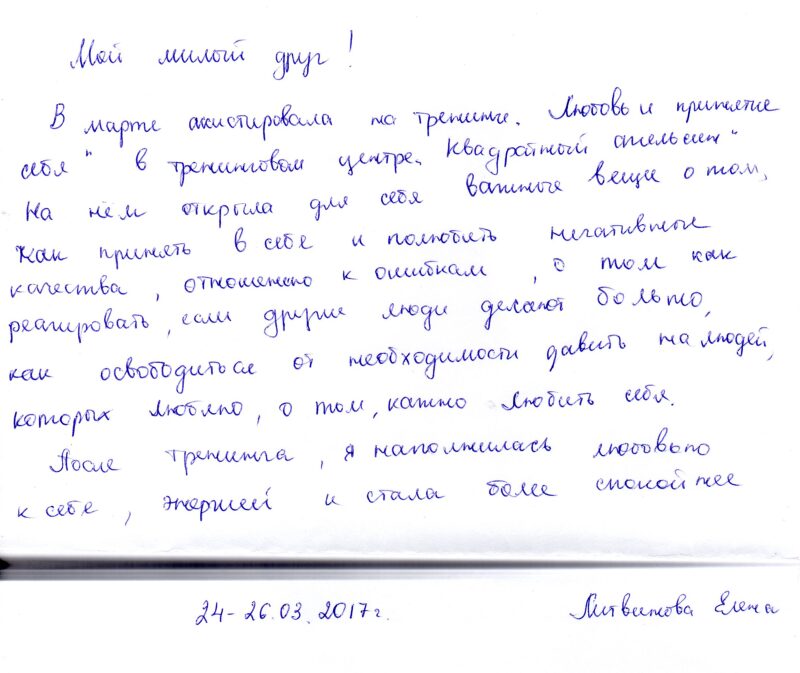 Мой милый друг!
В марте ассистировала на тренинге „Любовь и принятие
себя" в тренинговом центре „Квадратный апельсин"
На нём открыла для себя важные вещи о том,
как принять в себе и полюбить негативные
качества, отношению к ошибкам, о том как
реагировать, если другие люди делают больно,
как освободиться от необходимости давить на людей,
которых люблю, о том, важно любить себя.
После тренинга, я наполнилась любовью
к себе, энергией и стала более спокойнее
24-26.03.2017г.
Литвинова Елена